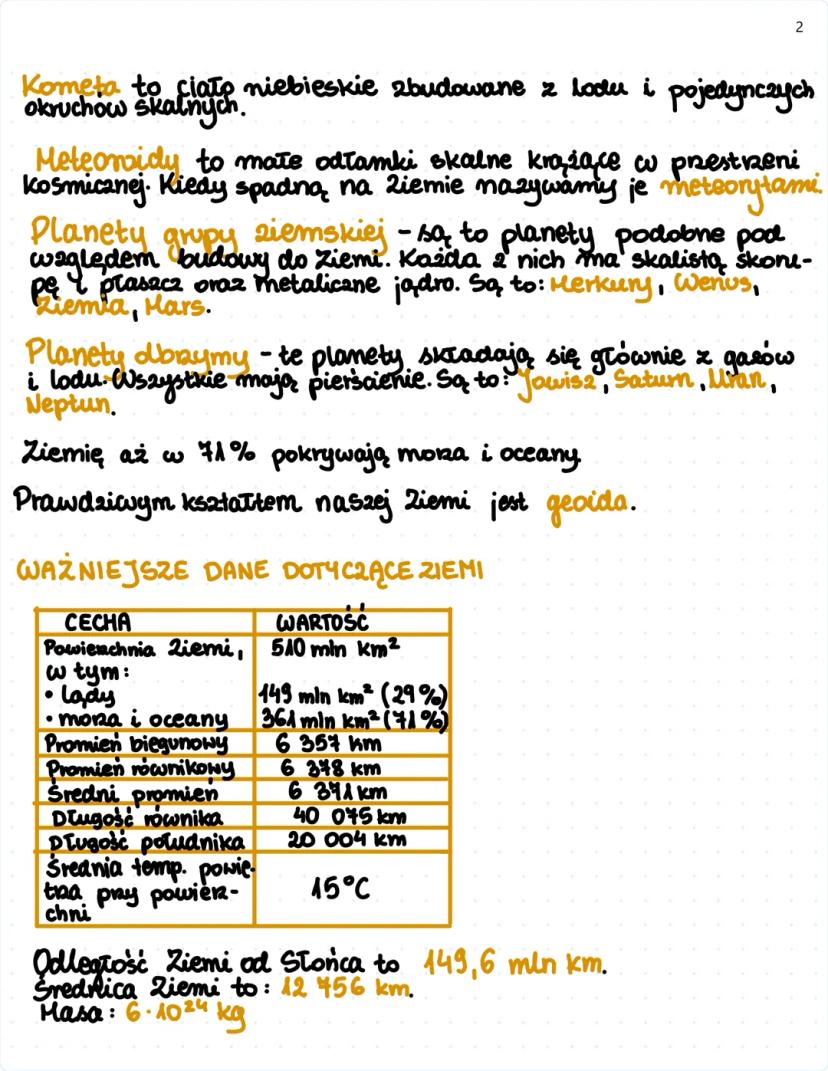 2
Kometa to ciało niebieskie zbudowane z lodu i pojedynczych
okruchów skalnych.
Meteoroidy to małe odłamki skalne krążące w przestrzeni
kosmicznej. Kiedy spadną na Ziemie nazywamy je meteorytami.
Planety grupy ziemskiej - są to planety podobne pod
względem budowy do Ziemi. Każda z nich ma skalistą skoru-
pę i płaszcz oraz metaliczne jądro. Są to: Merkury, Wenus,
Ziemia, Mars.
Planety olbrzymy - te planety składają się głównie z gazów
i lodu. Wszystkie mają pierścienie. Są to: Jowisz, Saturn, Uran,
Neptun.
Ziemię aż w 71% pokrywają morza i oceany
Prawdziwym kształtem naszej Ziemi jest geoida.
WAŻNIEJSZE DANE DOTYCZĄCE ZIEMI
CECHA WARTOŚĆ
Powierzchnia Ziemi, 510 mln km²
w tym:
• lądy 149 mln km² (29%)
• morza i oceany 361 mln km² (71%)
Promień biegunowy 6 357 km
Promień równikowy 6 378 km
Średni promień 6 371 km
Długość równika 40 075 km
Długość południka 20 004 km
Średnia temp. powie-
trza przy powierz- 15°C
chni
Odległość Ziemi od Słońca to 149,6 mln km.
Średnica Ziemi to: 12 756 km.
Masa: 6·10²⁴ kg